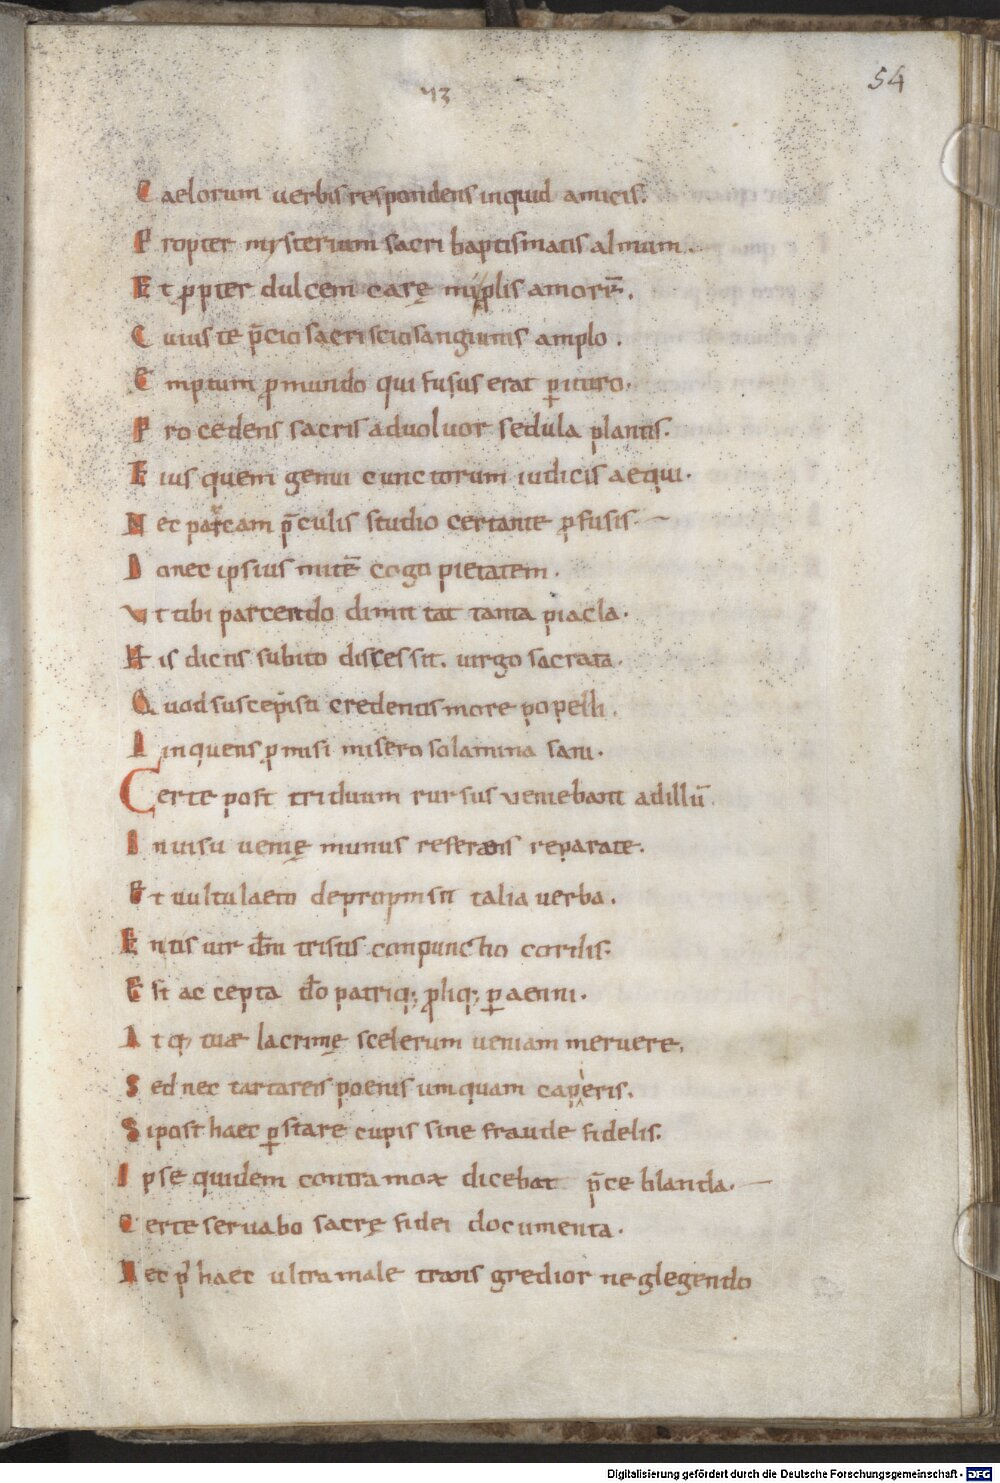 54
43
Caelorum uerbis respondens inquid amicis.
Propter mysterium sacri baptismatis almum.
Et ꝓpter dulcem carę mi plis amorē.
Cuius te p̄cio sacri scio sanguinis amplo.
Emptum ꝓ mundo qui fusus erat ꝑituro.
Procedens sacris aduoluor sedula plantis.
Eius quem genui cunctorum iudicis aequi.
Nec parcam p̄culis studio certante ꝓfusis.
Donec ipsius mitē cogo pietatem.
Vt tibi parcendo dimittat tanta piacla.
His dictis subito discessit. uirgo sacrata.
Quod suscepisti credentis more popelli.
Linquens ꝓmisi misero solamina sani.
Certe post triduum rursus veniebat ad illū.
In uisu uenię munus referens reparate.
Et uultu laeto deprompsit talia uerba.
Entis uir dn̄i tristis conpunctio cordis.
Est accepta do patriq; ꝓliq; ꝑ aeuui.
Atq; tuae lacrimę scelerum ueniam meruere.
Sed nec tartareis poenis umquam capieris.
Si post haec ꝑstare cupis sine fraude fidelis.
Ipse quidem contra mox dicebat p̄ce blanda.
Certe seruabo sacrę fidei documenta.
Nec p' haec ultra male transgredior neglegendo
Digitalisierung gefördert durch die Deutsche Forschungsgemeinschaft - DFG